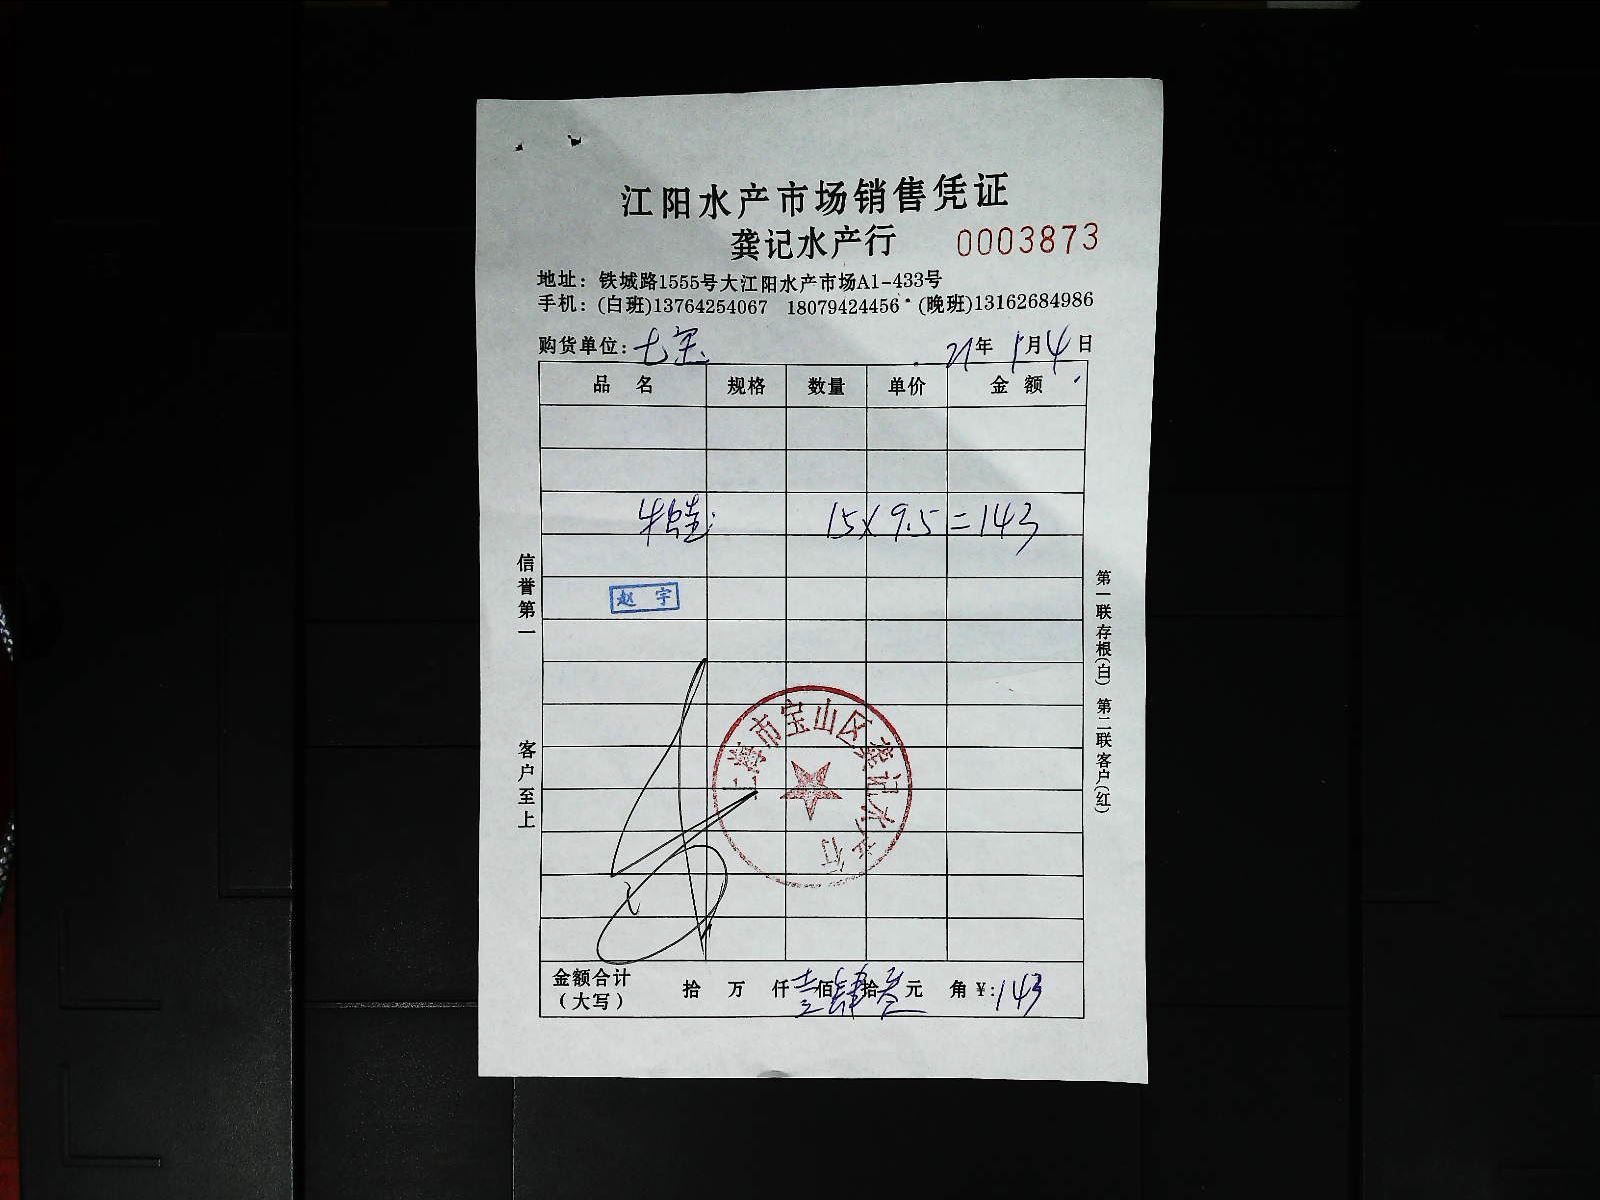 江阳水产市场销售凭证
龚记水产行 0003873
地址：铁城路1555号大江阳水产市场A1-433号
手机：(白班)13764254067 18079424456 (晚班)13162684986
购货单位：七宝 21年1月4日
品名 规格 数量 单价 金额
牛蛙 15×9.5=143
赵宇
信誉第一 客户至上
第一联存根(白) 第二联客户(红)
上海市宝山区龚记水产行
金额合计（大写） 拾 万 仟 壹佰肆拾叁元 角 ¥:143